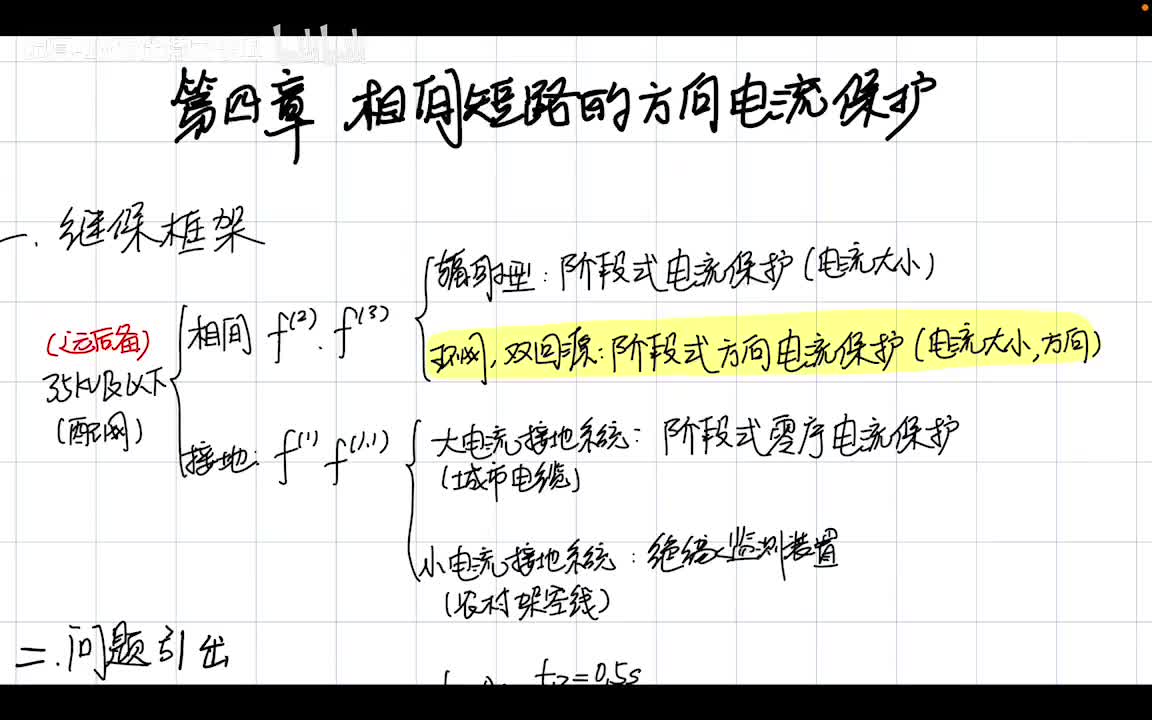 第四章 相间短路的方向电流保护
一. 继保框架
辐射型：阶段式电流保护（电流大小）
(远后备)
相间 f⁽²⁾. f⁽³⁾
环网，双回源：阶段式方向电流保护（电流大小，方向）
35KV及以下
(配网)
接地： f⁽¹⁾ f⁽¹,¹⁾
大电流接地系统：阶段式零序电流保护
(城市电缆)
小电流接地系统：绝缘监测装置
(农村架空线)
二.问题引出
t₂=0.5s